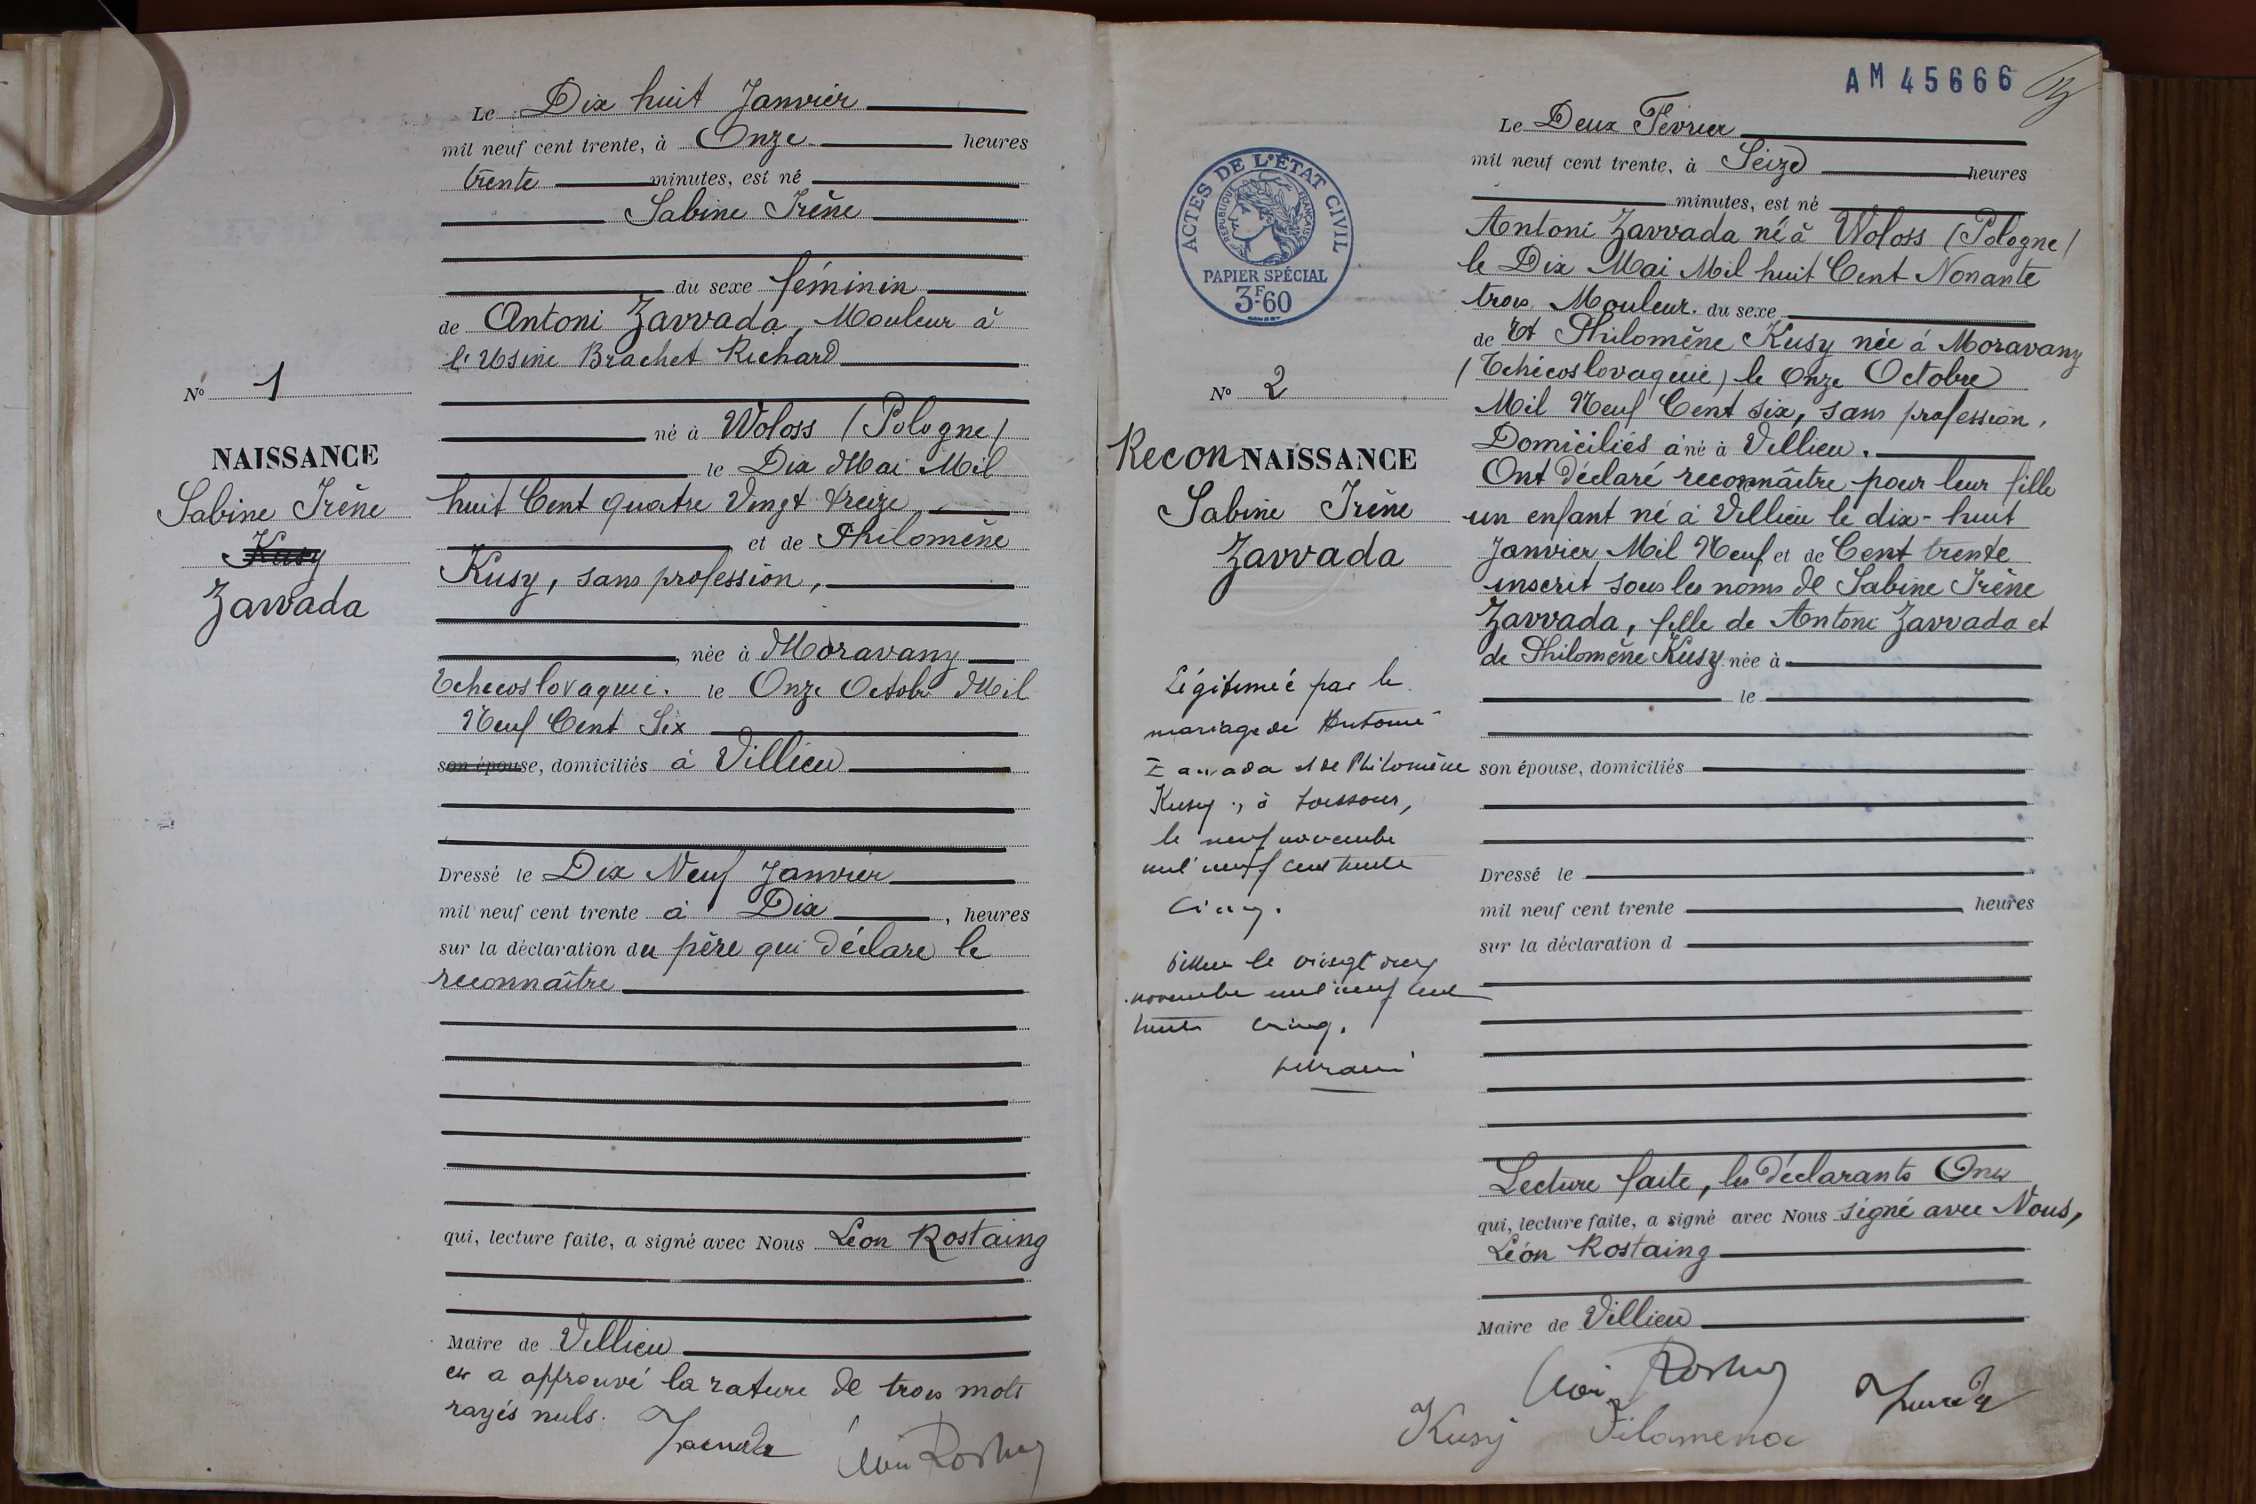 Le Dix huit Janvier
mil neuf cent trente, à Onze heures
trente minutes, est né
Sabine Irène
du sexe féminin
de Antoni Zavvada, Mouleur à
l'Usine Brachet Richard
né à Woloss (Pologne)
le Dix Mai Mil
huit Cent quatre Vingt treize
et de Philomène
Kusy, sans profession,
, née à Moravany
Tchécoslovaquie. le Onze Octobre Mil
Neuf Cent Six
son épouse, domiciliés à Villieu
Dressé le Dix Neuf Janvier
mil neuf cent trente à Dix, heures
sur la déclaration du père qui déclare le
reconnaître
qui, lecture faite, a signé avec Nous Léon Rostaing
Maire de Villieu
et a approuvé la rature de trois mots
rayés nuls.
N° 1
NAISSANCE
Sabine Irène
Kusy
Zavvada
AM 45666
ACTES DE L'ÉTAT CIVIL
RÉPUBLIQUE FRANÇAISE
PAPIER SPÉCIAL
3F60
N° 2
ReconNAISSANCE
Sabine Irène
Zavvada
Légitimée par le
mariage de Antoni
Zavvada et de Philomène
Kusy, à
le neuf novembre
mil neuf cent trente
cinq.
Villieu le vingt deux
novembre mil neuf cent
trente cinq.
Le Deux Février
mil neuf cent trente, à Seize heures
minutes, est né
Antoni Zavvada né à Woloss (Pologne)
le Dix Mai Mil huit Cent Nonante
trois Mouleur. du sexe
de Et Philomène Kusy née à Moravany
(Tchécoslovaquie) le Onze Octobre
Mil Neuf Cent six, sans profession,
Domiciliés à né à Villieu.
Ont déclaré reconnaître pour leur fille
un enfant né à Villieu le dix-huit
Janvier Mil Neuf et de Cent trente
inscrit sous les noms de Sabine Irène
Zavvada, fille de Antoni Zavvada et
de Philomène Kusy née à
le
son épouse, domiciliés
Dressé le
mil neuf cent trente heures
sur la déclaration d
Lecture faite, les déclarants Ont
qui, lecture faite, a signé avec Nous signé avec Nous,
Léon Rostaing
Maire de Villieu
Kusy Filomena